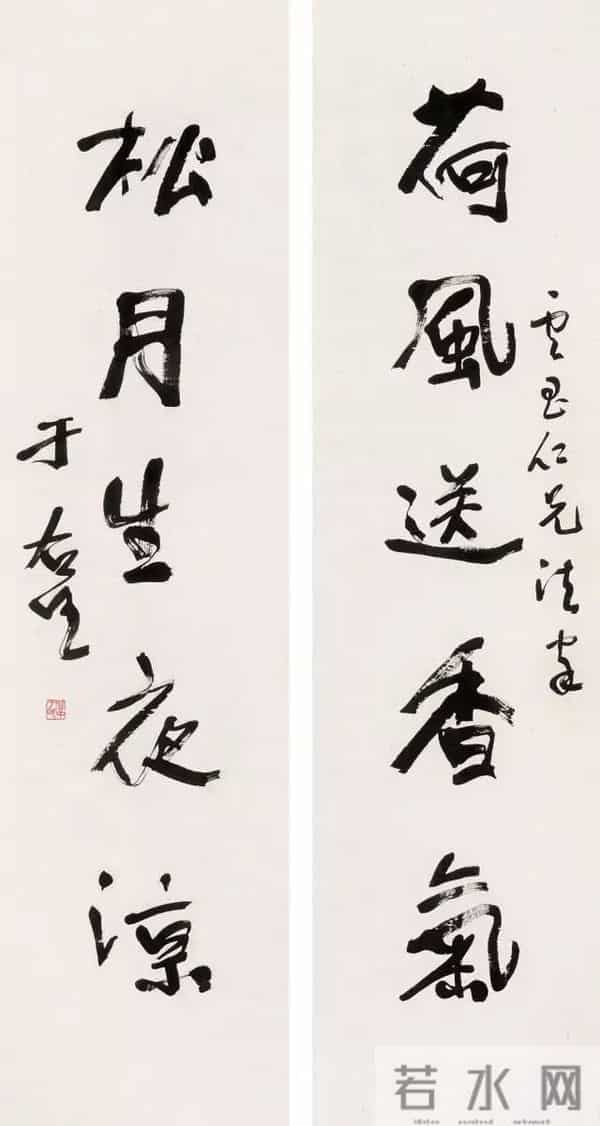 荷風送香氣
雲仁兄法家
松月生夜涼
于右任
若水网